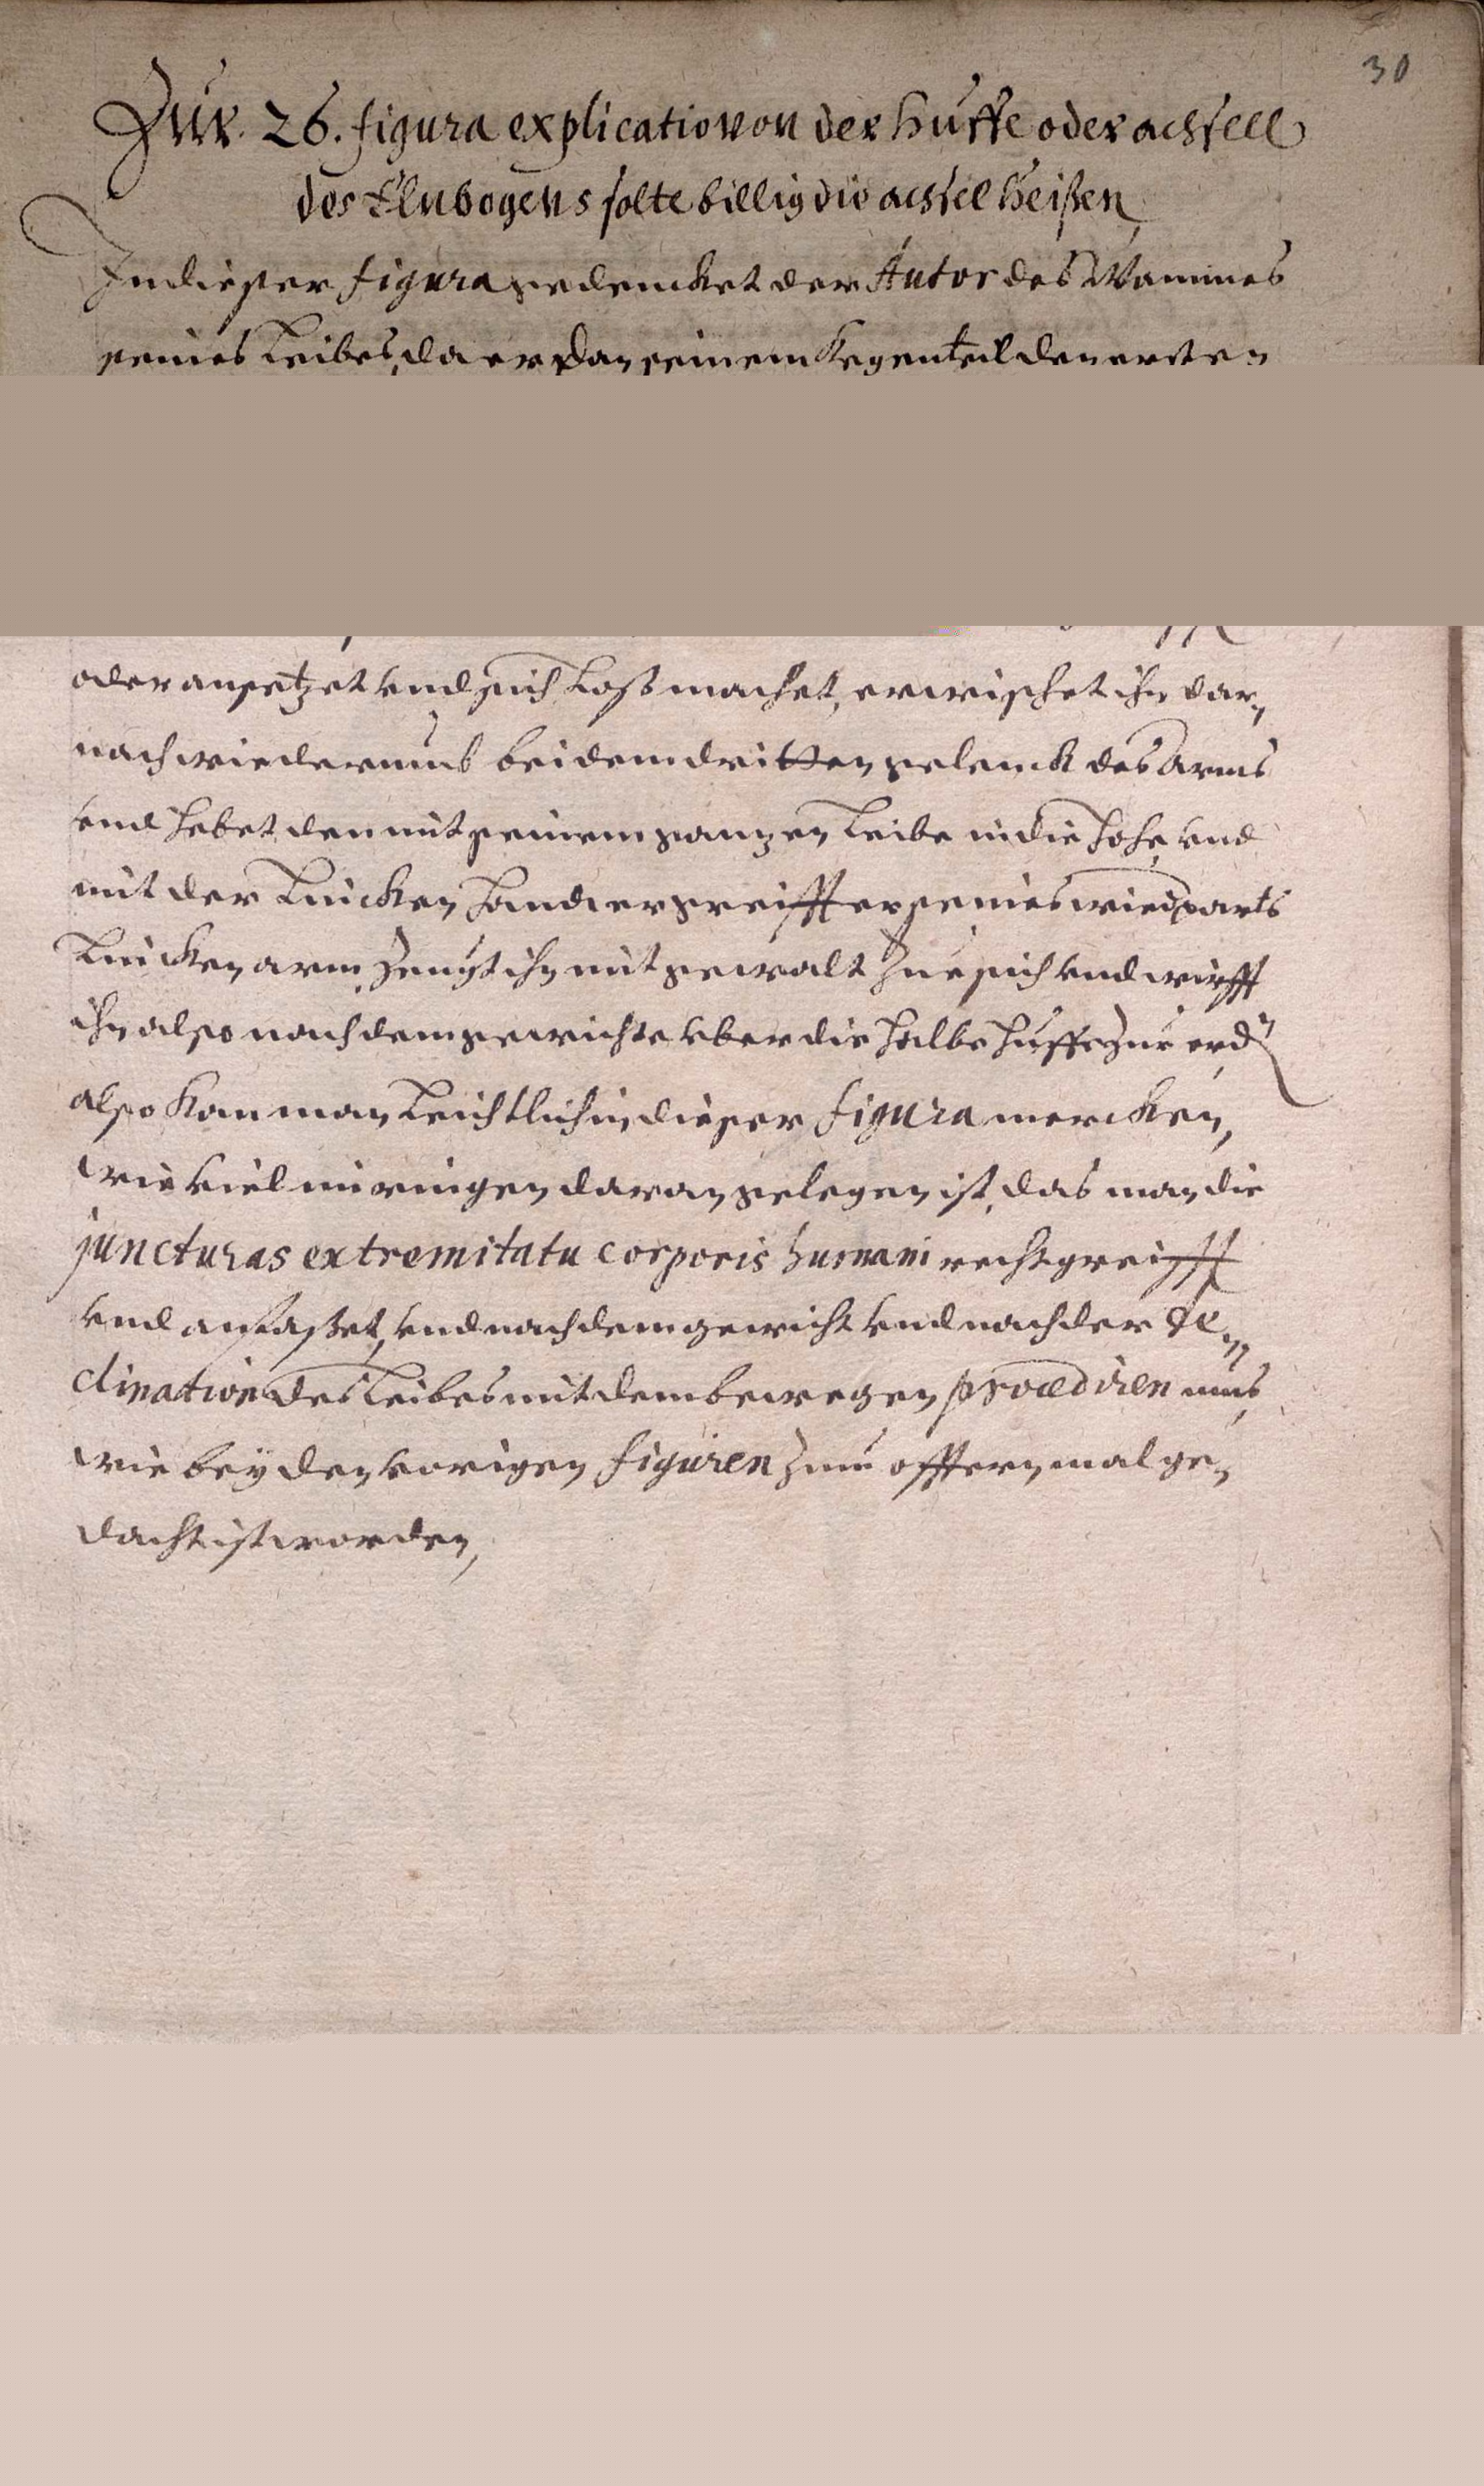 30
Zur 26. figura explicatio von der huffe oder achsell
des Elnbogens solte billig die achsel heißen
In dieser figura gedencket der Autor des Nammes
seines Leibes, da er dan seinem Kegenteil den ersten
oder ansetzet vnd sich Loß machet, erwischet ihn dar,
nach wiederumb bei dem dritten gelenck des Arms
vnd hebet den mit seinem gantzen Leibe in die Hohe vnd
mit der Lincken Hand ergreifft er seines wiedparts
Lincken arm, Zeugt ihn mit gewalt Zue sich vnd wirfft
ihn also nach dem gewichte vber die Halbe Huffe Zur erd
also kan man Leichtlich in dieser figura mercken,
wie viel im ringen daran gelegen ist, das man die
juncturas extremitatu corporis humani recht greifft
vnd anfaßet, vnd nach dem gewicht vnd nach der de,
clination des Leibes mit dem bewegen procediren mus,
wie bey den vorigen figuren Zum offtern mal ge,
dacht ist worden,